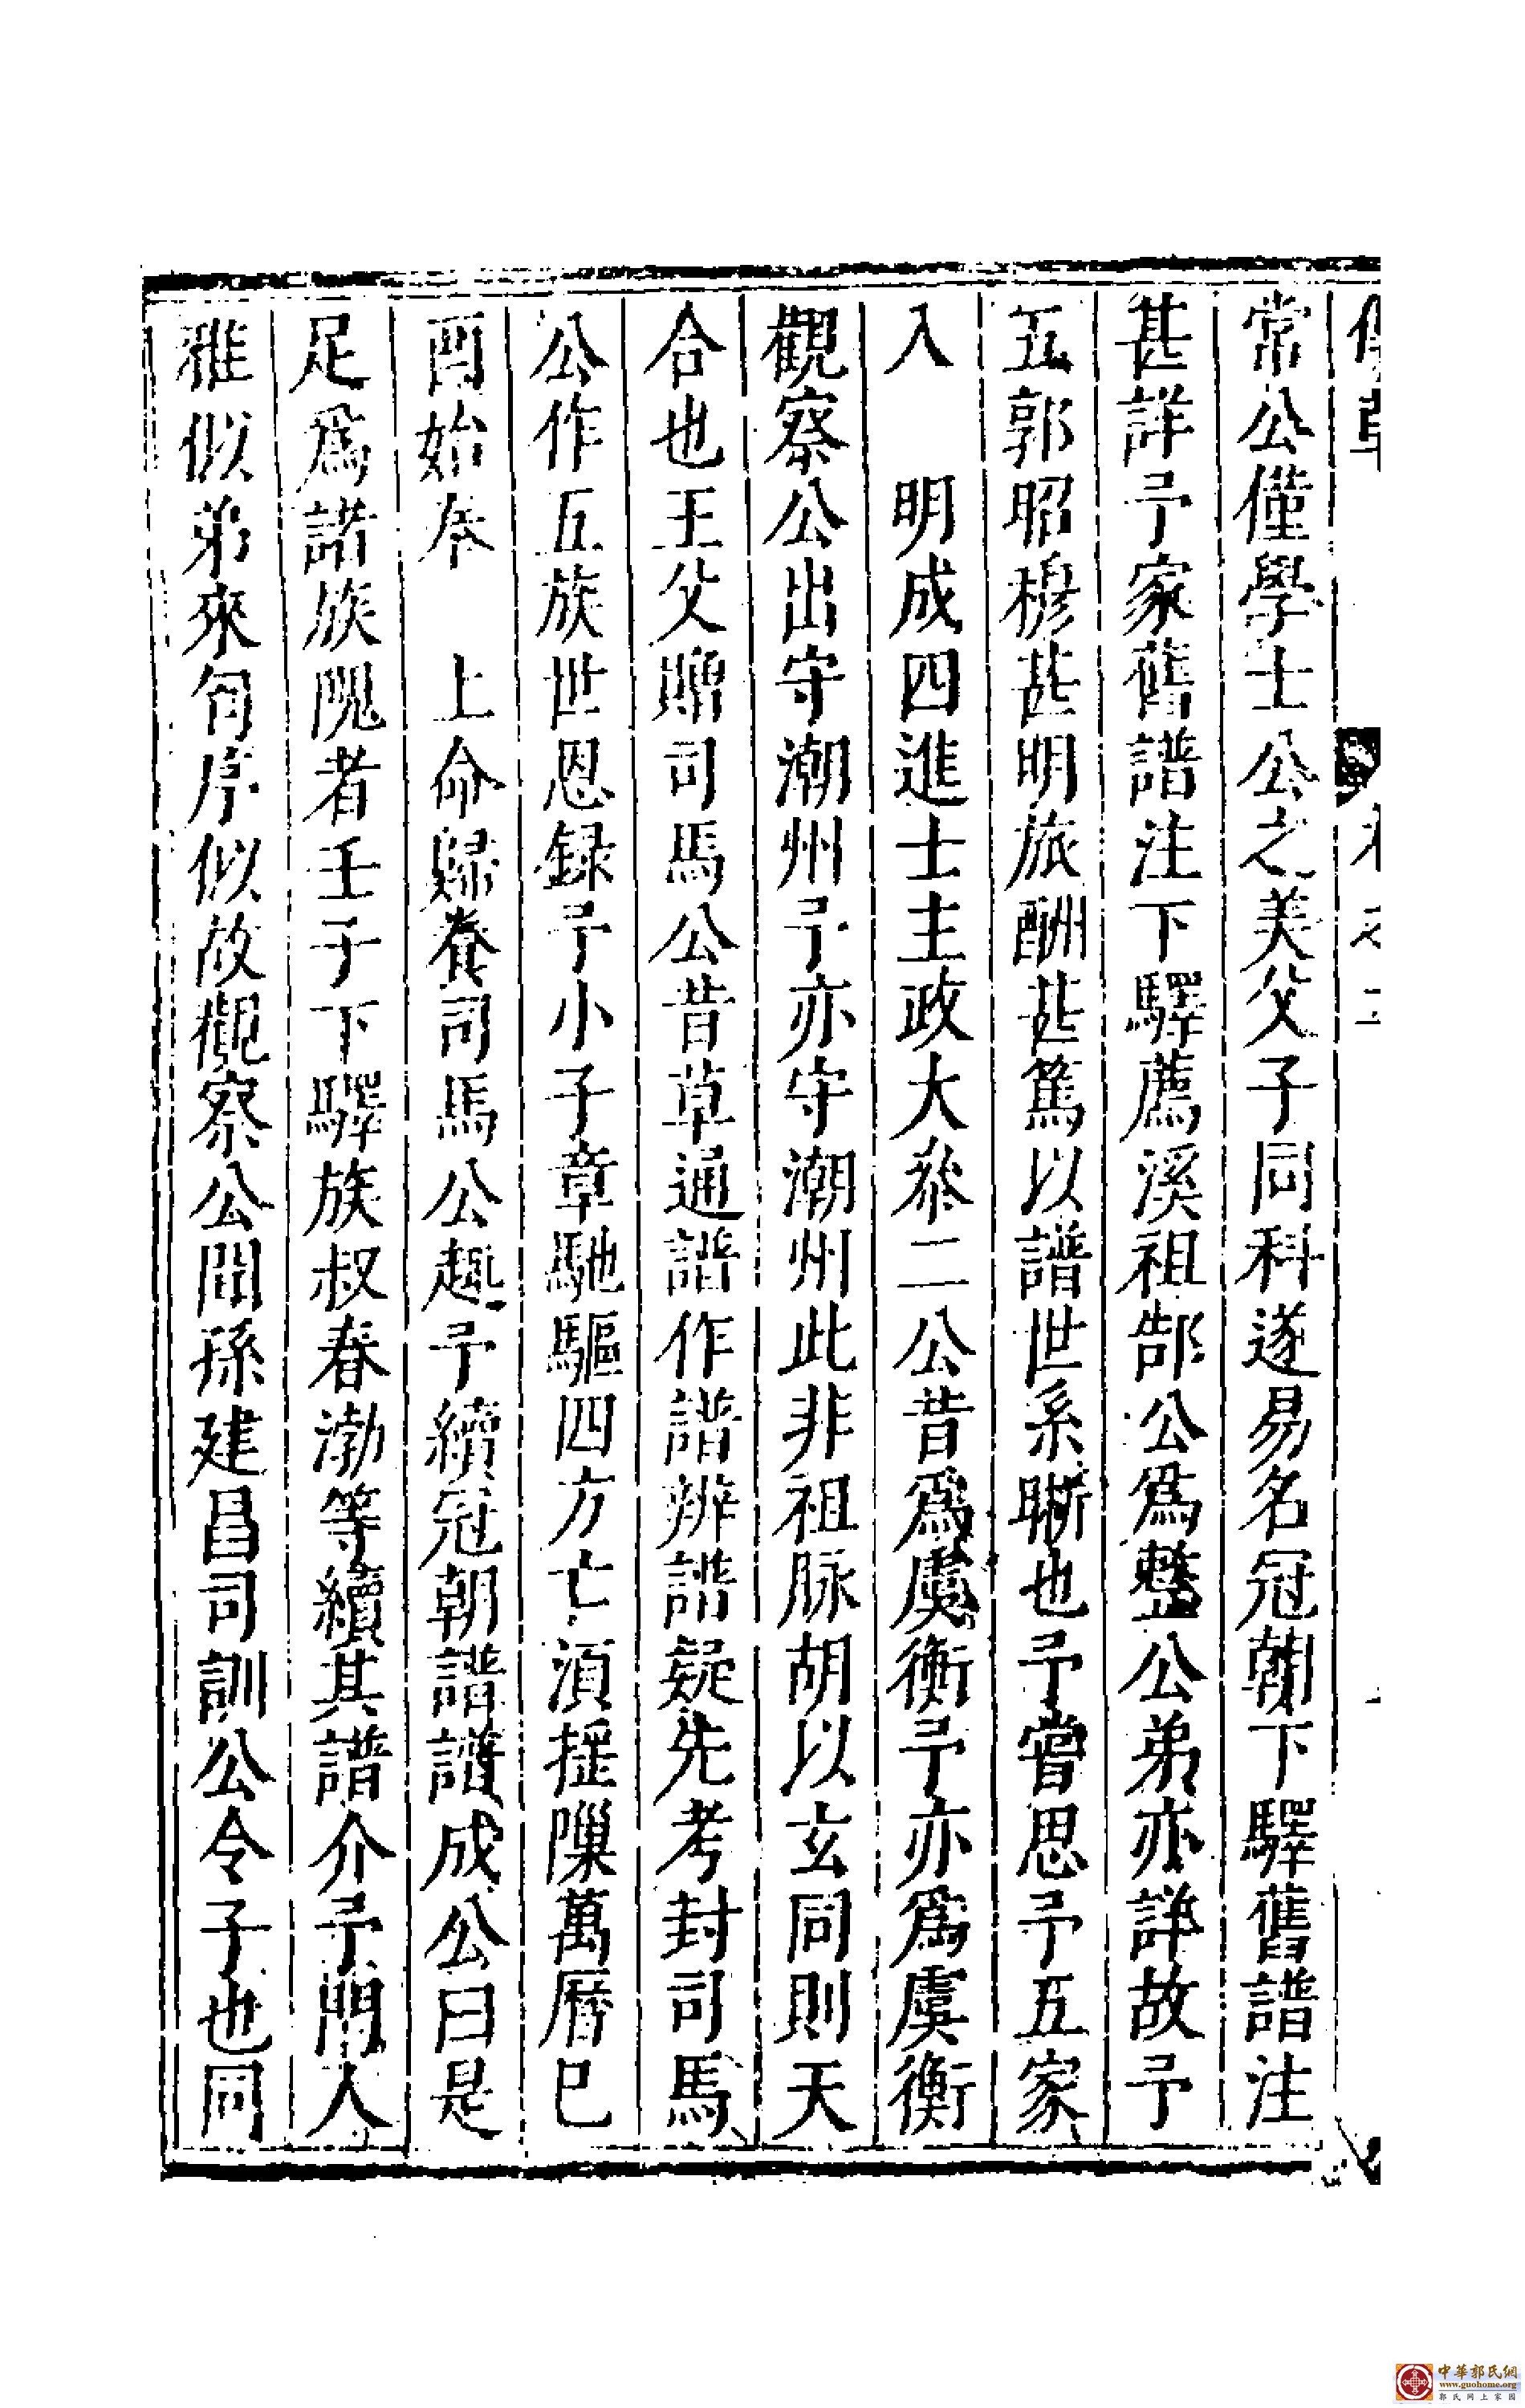 常公僅學士公之美父子同科遂易名冠朝下驛舊譜注
甚詳予家舊譜注下驛薦溪祖郜公為整公弟亦詳故予
五郭昭穆甚明旅酬甚篤以譜世系晰也予嘗思予五家
入 明成四進士主政大參二公昔為虞衡予亦為虞衡
觀察公出守潮州予亦守潮州此非祖脉胡以玄同則天
合也王父贈司馬公昔草通譜作譜辨譜疑先考封司馬
公作五族世恩録予小子章馳驅四方亡湏搖隟萬曆巳
酉始奉 上命歸養司馬公趣予續冠朝譜譜成公曰是
足為諸族隗者壬子下驛族叔春渤等續其譜介予門人
雅似弟來旬序似故觀察公聞孫建昌司訓公令子也同
中華郭氏網
www.guohome.org
郭氏网上家园